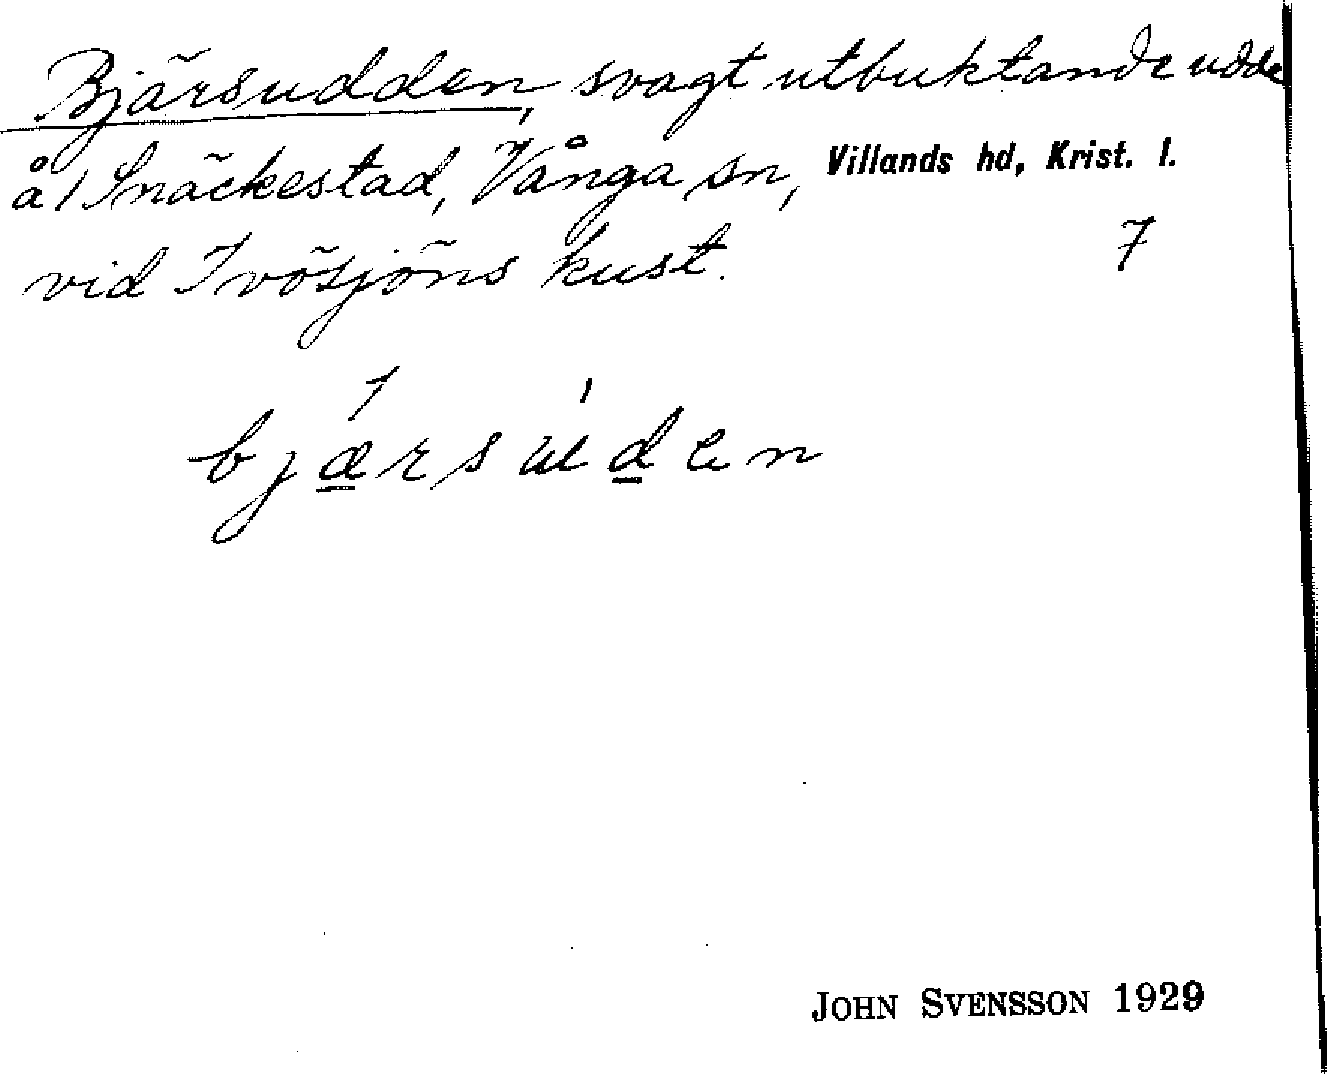 Bjärsudden, svagt utbuktande udde
å 1 Snäckestad, Vånga sn, Villands hd, Krist. l.
vid Ivösjöns kust. 7
bjærsuden
JOHN SVENSSON 1929